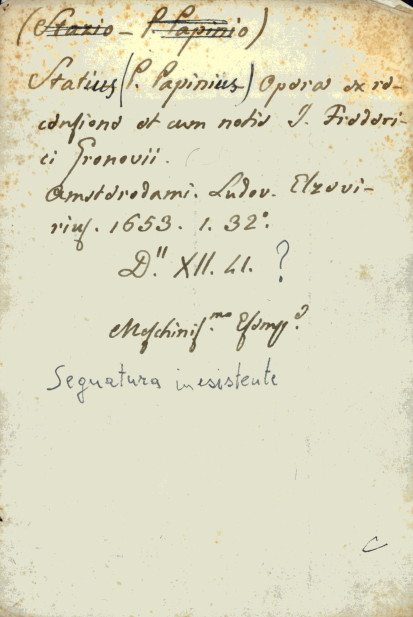 (Stazio - P. Papinio)
Statius (P. Papinius) Opera ex re-
censione et cum notis J. Frederi-
ci Gronovii.
Amsterodami. Ludov. Elzevi-
rius. 1653. 1. 32°.
D." XII. 41. ?
Meschinis.mo Esemp.e
Segnatura inesistente
C